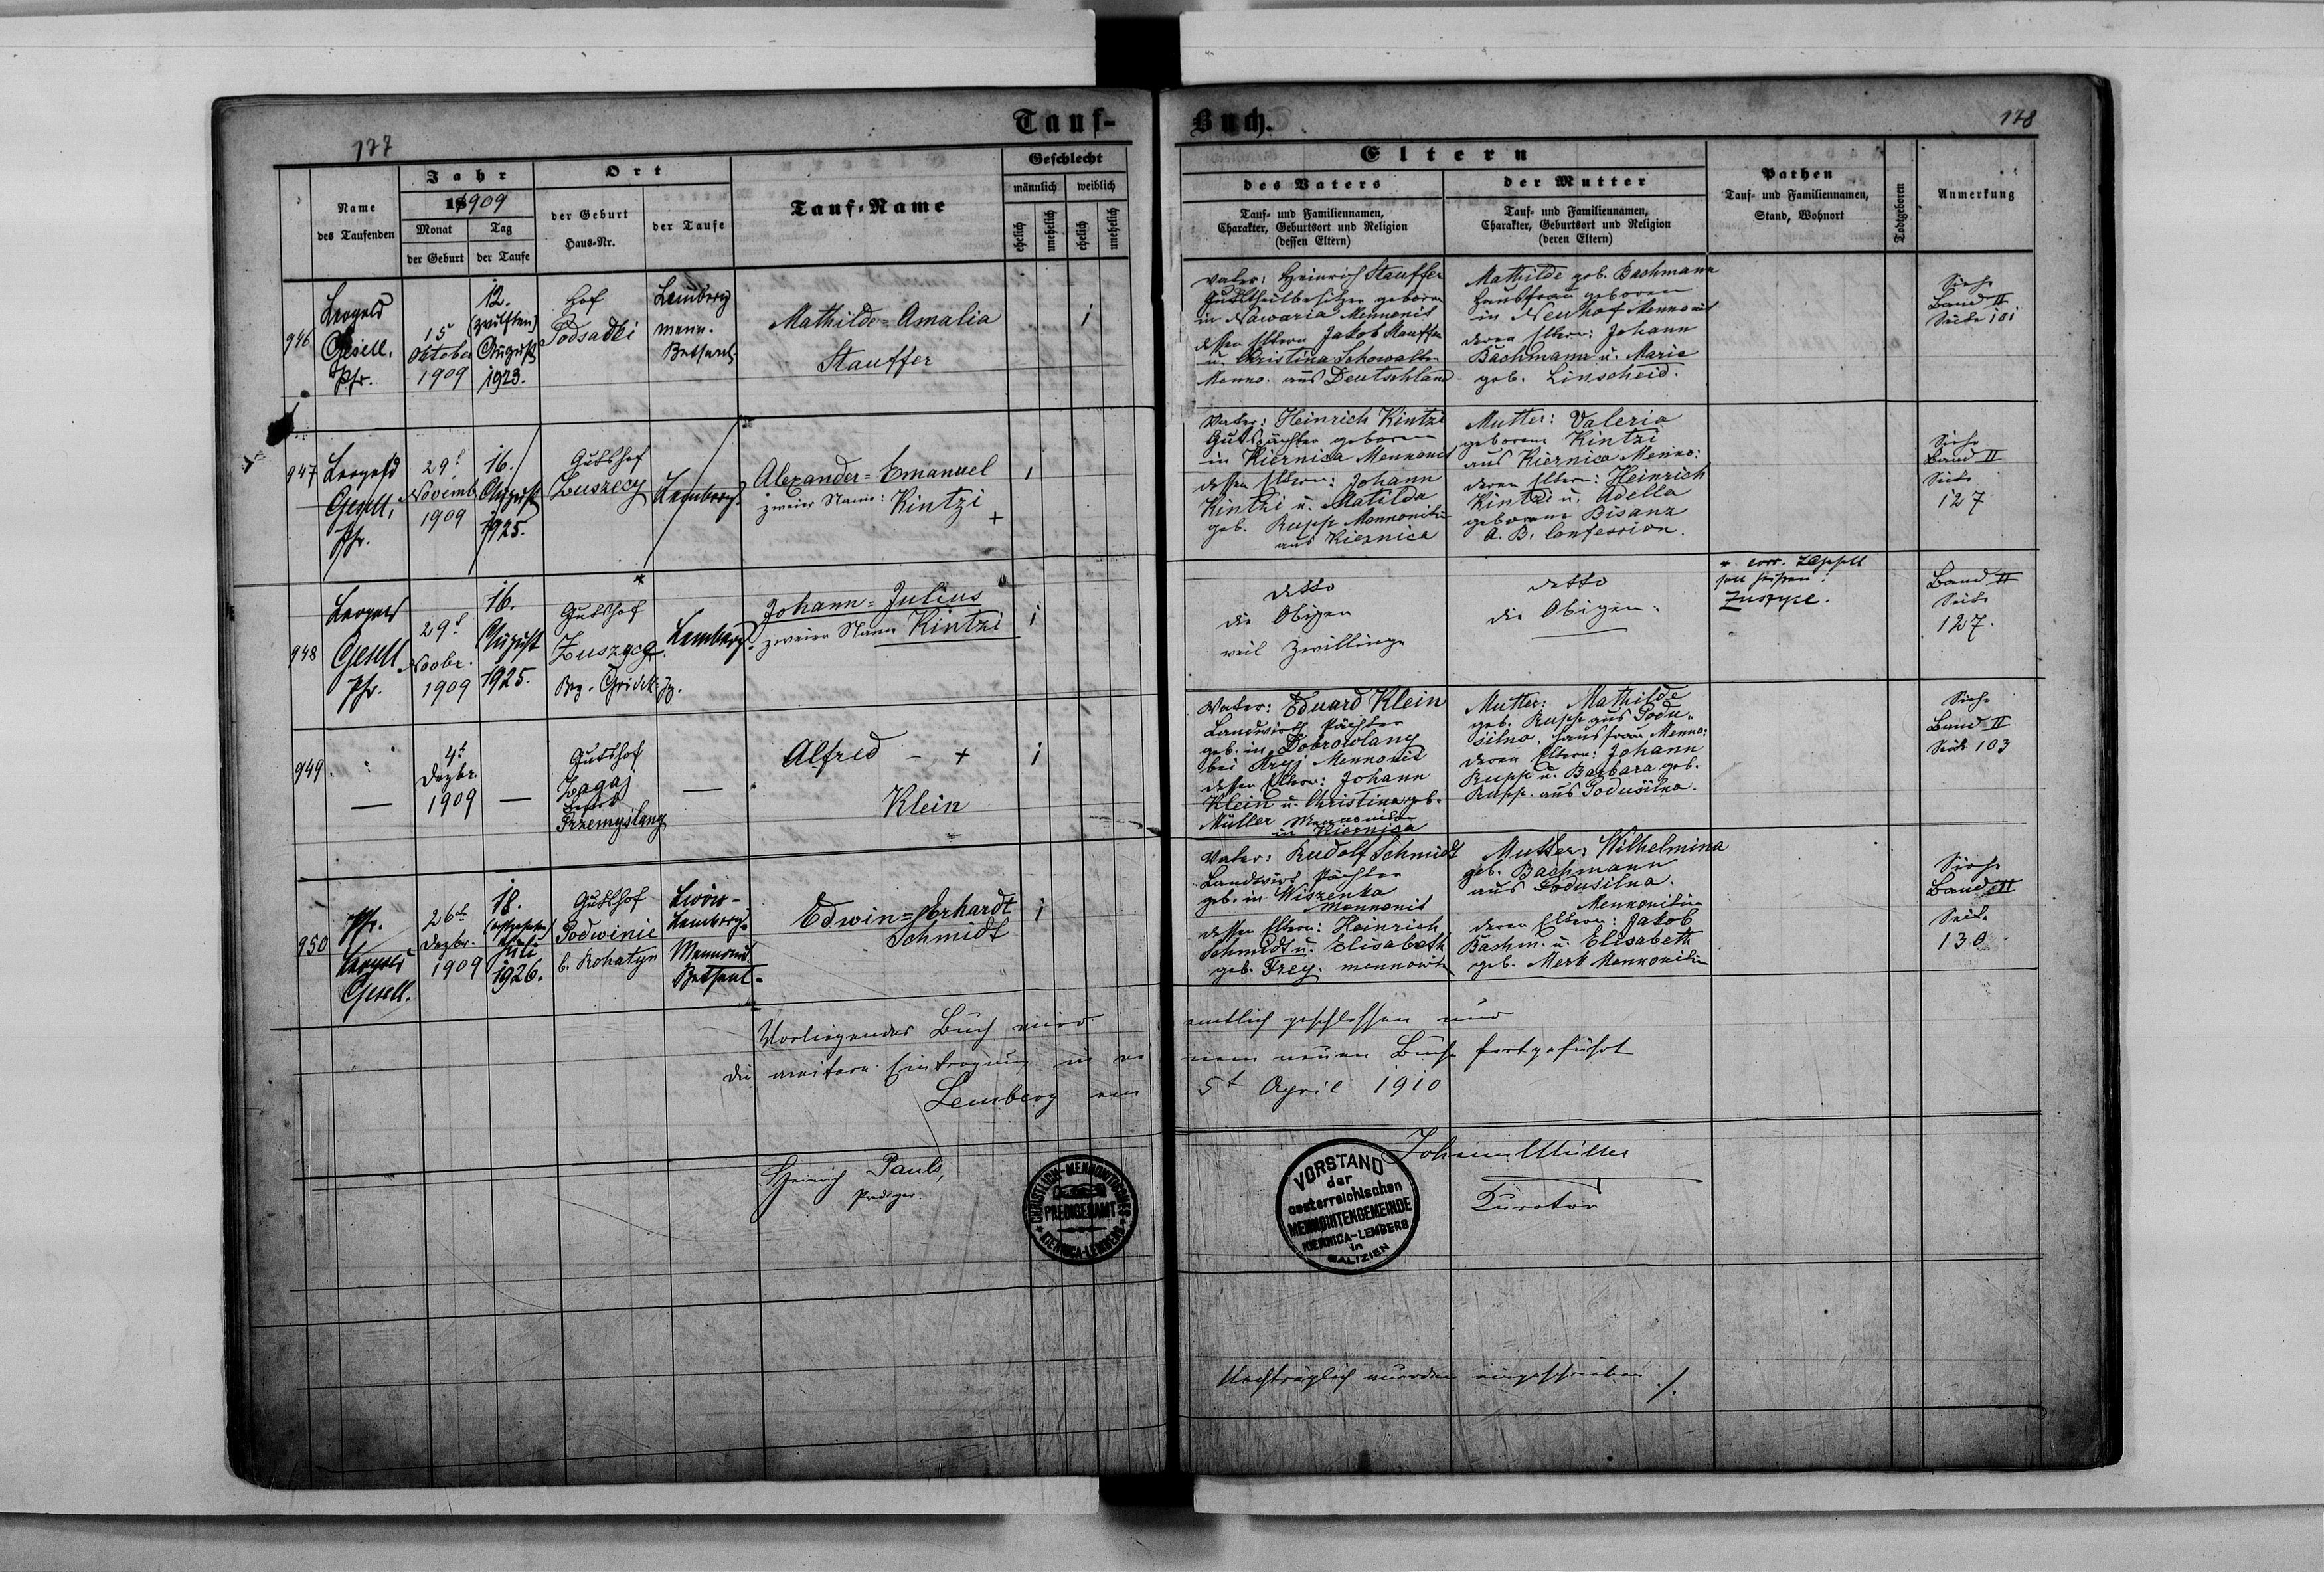 177
Tauf-
Name
des Taufenden
Jahr
1909
Monat
der Geburt
Tag
der Taufe
Ort
der Geburt
Haus-Nr.
der Taufe
Tauf-Name
Geschlecht
männlich
weiblich
ehelich
unehelich
ehelich
unehelich
946
Leopold
Gesell,
Pfr.
15
Oktober
1909
12.
(zwölften)
August
1923.
Hof
Podsadki
Lemberg
menn.
Betsaal
Mathilde=Amalia
Stauffer
1
947
Leopold
Gesell,
Pfr.
29t
Novemb
1909
16.
August
1925.
Gutshof
Zuszecy
Lemberg.
Alexander=Emanuel
zweier Name: Kintzi
+
1
948
Leopold
Gesell
Pfr.
29t
Novbr.
1909
16.
August
1925.
*
Gutshof
Lemberg.
Johann=Julius
zweier Name Kintzi
1
949.
"
—
4t
Dezbr.
1909
—
Gutshof
Zagaj
Przemyslany
—
Alfred - +
Klein
1
950
Pfr.
Leopold
Gesell.
26t
Dezbr.
1909
18.
(achtzehn)
Juli
1926.
Gutshof
Podwinie
b. Rohatyn
Lwów-
Lemberg.
Mennonit.
Betsaal-
Edwin=Erhardt
Schmidt
1
Vorliegendes Buch wird
die weitere Eintragung in ei
Lemberg am
Heinrich Pauls,
Prediger.
CHRISTLICH-MENNONITISCHES
PREDIGERAMT
KIERNICA-LEMBERG
Buch.
178
Eltern
des Vaters
Tauf- und Familiennamen,
Charakter, Geburtsort und Religion
(dessen Eltern)
der Mutter
Tauf- und Familiennamen,
Charakter, Geburtsort und Religion
(deren Eltern)
Pathen
Tauf- und Familiennamen,
Stand, Wohnort
Todtgeboren
Anmerkung
Vater: Heinrich Stauffer
Gutstheilbesitzer geboren
in Nawaria Mennonit
dessen Eltern Jakob Stauffer
u. Christina Schowalter
Menno. aus Deutschland
Mathilde geb. Bachmann
Hausfrau geboren
in Neuhof Mennonit
deren Eltern: Johann
Bachmann u. Marie
geb. Linscheid.
Siehe
Band II
Seite 101
Vater: Heinrich Kintzi
Gutspächter geboren
in Kiernica Mennonit
dessen Eltern: Johann
Kintzi u. Matilda
geb. Rupp Mennonitin
aus Kiernica
Mutter: Valeria
geborene Kintzi
aus Kiernica Menno:
deren Eltern: Heinrich
Kintzi u. Adella
geborene Bisanz
A. B. Confession.
Siehe
Band II
Seite
127
detto
die Obigen
weil Zwillinge
detto
die Obigen.
Band II
Seite
127.
Vater: Eduard Klein
Landwirth Pächter
geb. in Dobrowlany
bei Stryj Mennonit
dessen Eltern: Johann
Klein u. Christina geb.
Müller Mennoniten
in Kiernica
Mutter: Mathilde
geb. Rupp aus Podu-
silna, Hausfrau Menno:
deren Eltern: Johann
Rupp u. Barbara geb.
Rupp. aus Podusilna.
Siehe
Band II
Seite 103
Vater: Rudolf Schmidt
Landwirt Pächter
geb. in Wiszenka
Mennonit
dessen Eltern: Heinrich
Schmidt u. Elisabeth
geb. Frey. mennonit
Mutter: Wilhelmina
geb. Bachmann
aus Podusilna.
Mennonitin
deren Eltern: Jakob
Bachm. u. Elisabeth
geb. Merk Mennonitin
Siehe
Band II
Seite
130
amtlich geschlossen und
nem neuen Buche fortgeführt
5t April 1910
VORSTAND
der
oesterreichischen
MENNONITENGEMEINDE
KIERNICA-LEMBERG
in
GALIZIEN
Johann Müller
Kurator
Nachträglich wurden eingeschrieben ./.